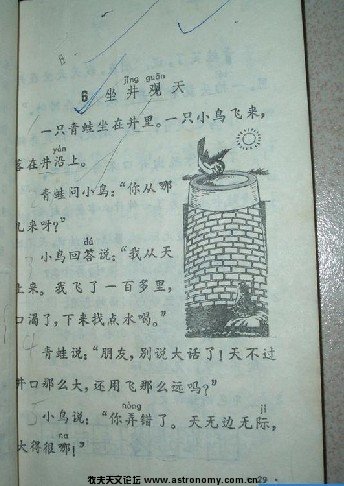 jǐng guān
6 坐井观天
一只青蛙坐在井里。一只小鸟飞来，
yán
落在井沿上。
青蛙问小鸟：“你从哪
儿来呀？”
dá
小鸟回答说：“我从天
上来。我飞了一百多里，
口渴了，下来找点水喝。”
青蛙说：“朋友，别说大话了！天不过
井口那么大，还用飞那么远吗？”
nòng jì
小鸟说：“你弄错了。天无边无际，
na
大得很哪！”
牧夫天文论坛 www.astronomy.com.cn
29